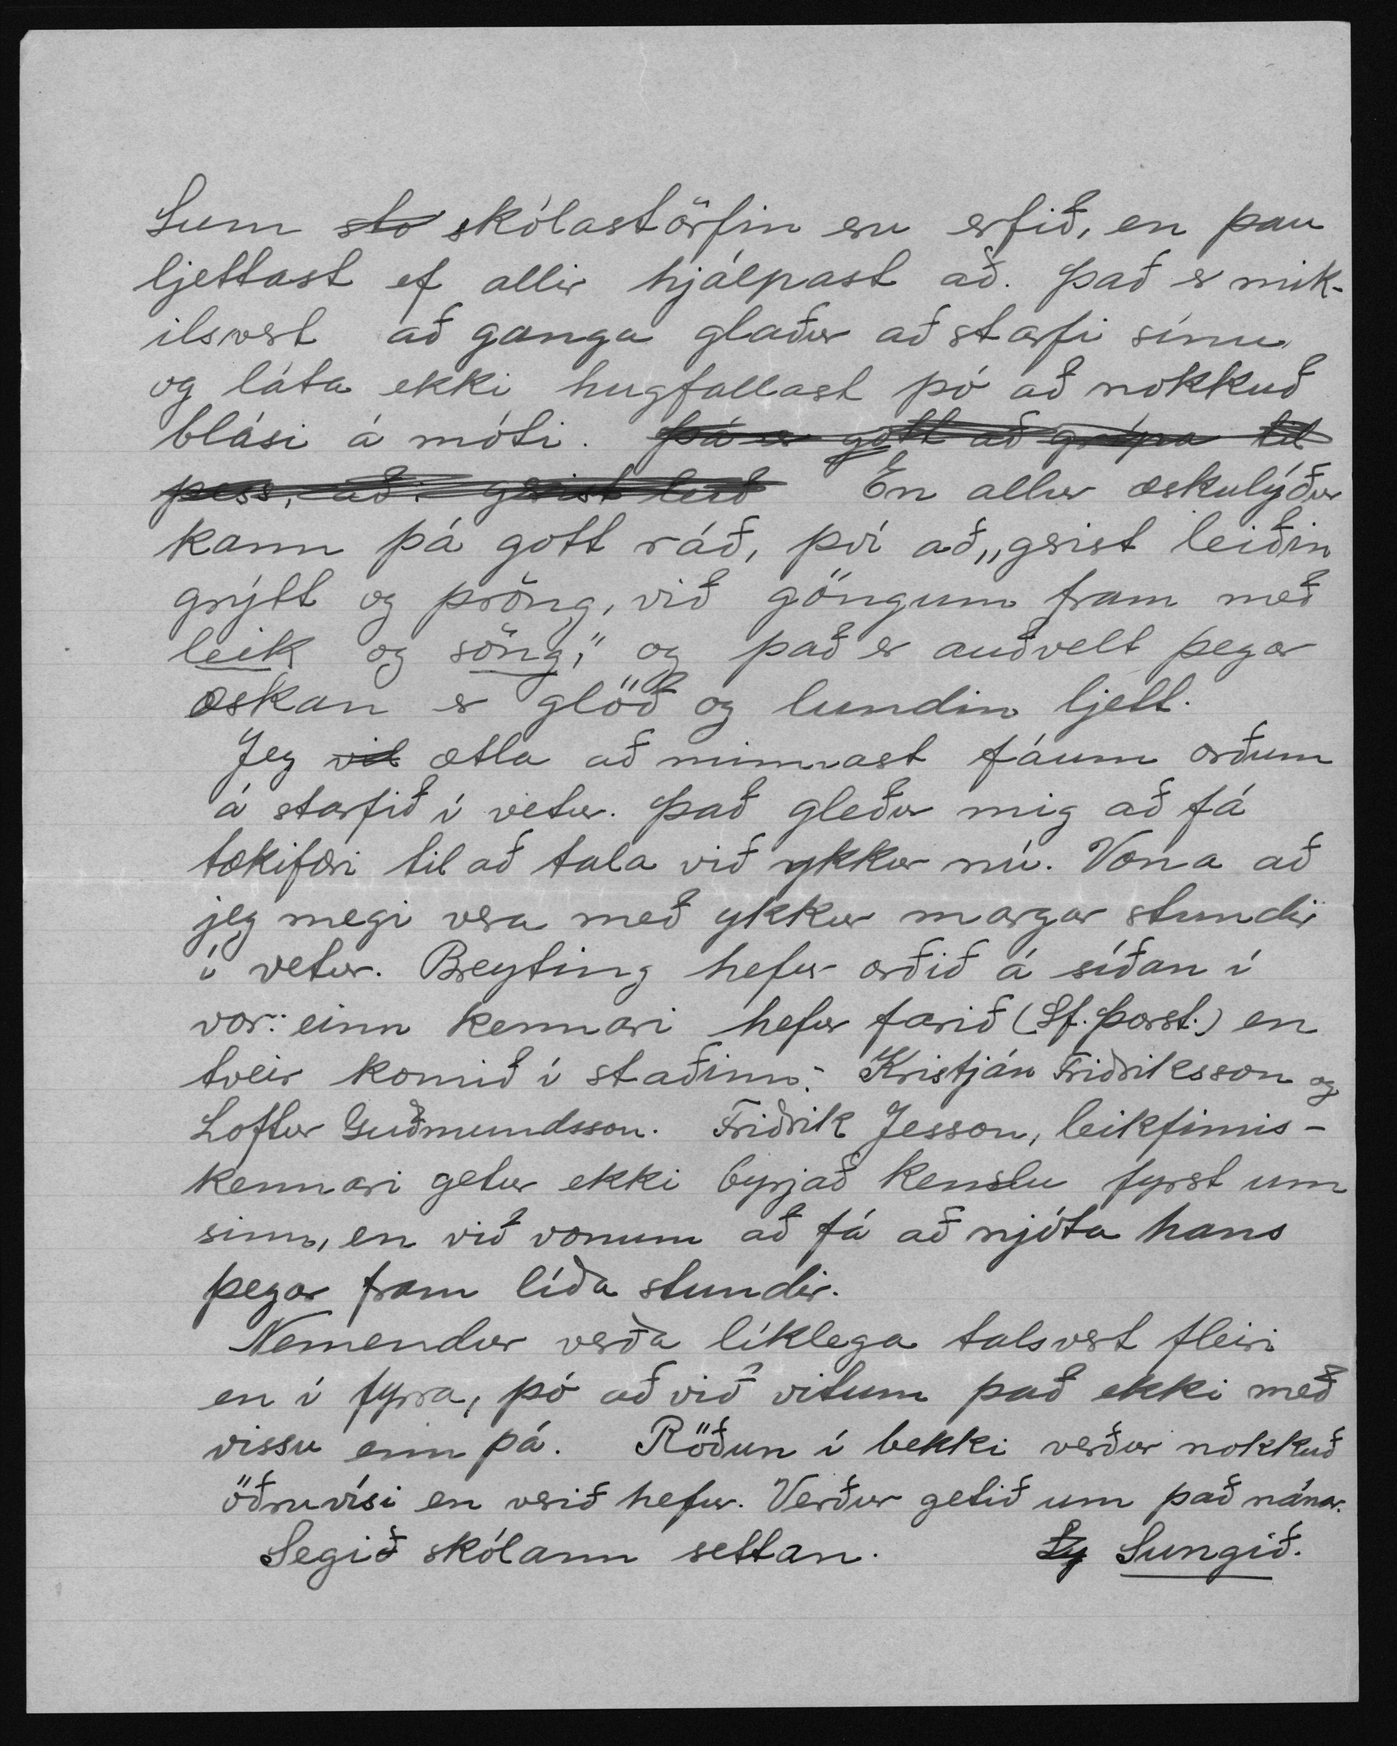 Sum sto skólastörfin eru erfið, en þau
ljettast ef allir hjálpast að. Það er mik-
ilsvert að ganga glaður að starfi sínu
og láta ekki hugfallast þó að nokkuð
blási á móti. Þá er gott að grípa til
þess, að: gerist leið En allur æskulýður
kann þá gott ráð, því að „gerist leiðin
grýtt og þröng, við göngum fram með
leik og söng," og það er auðvelt þegar
æskan er glöð og lundin ljett.
Jeg vil ætla að minnast fáum orðum
á starfið í vetur. Það gleður mig að fá
tækifæri til að tala við ykkur nú. Vona að
jeg megi vera með ykkur margar stundir
í vetur. Breyting hefur orðið á síðan í
vor: einn kennari hefur farið (Sf. Þorst.) en
tveir komið í staðinn: Kristján Friðriksson og
Loftur Guðmundsson. Friðrik Jesson, leikfimis-
kennari getur ekki byrjað kenslu fyrst um
sinn, en við vonum að fá að njóta hans
þegar fram líða stundir.
Nemendur verða líklega talsvert fleiri
en í fyrra, þó að við vitum það ekki með
vissu enn þá. Röðun í bekki verður nokkuð
öðruvísi en verið hefur. Verður getið um það nánar.
Segið skólann settan. Sy Sungið.